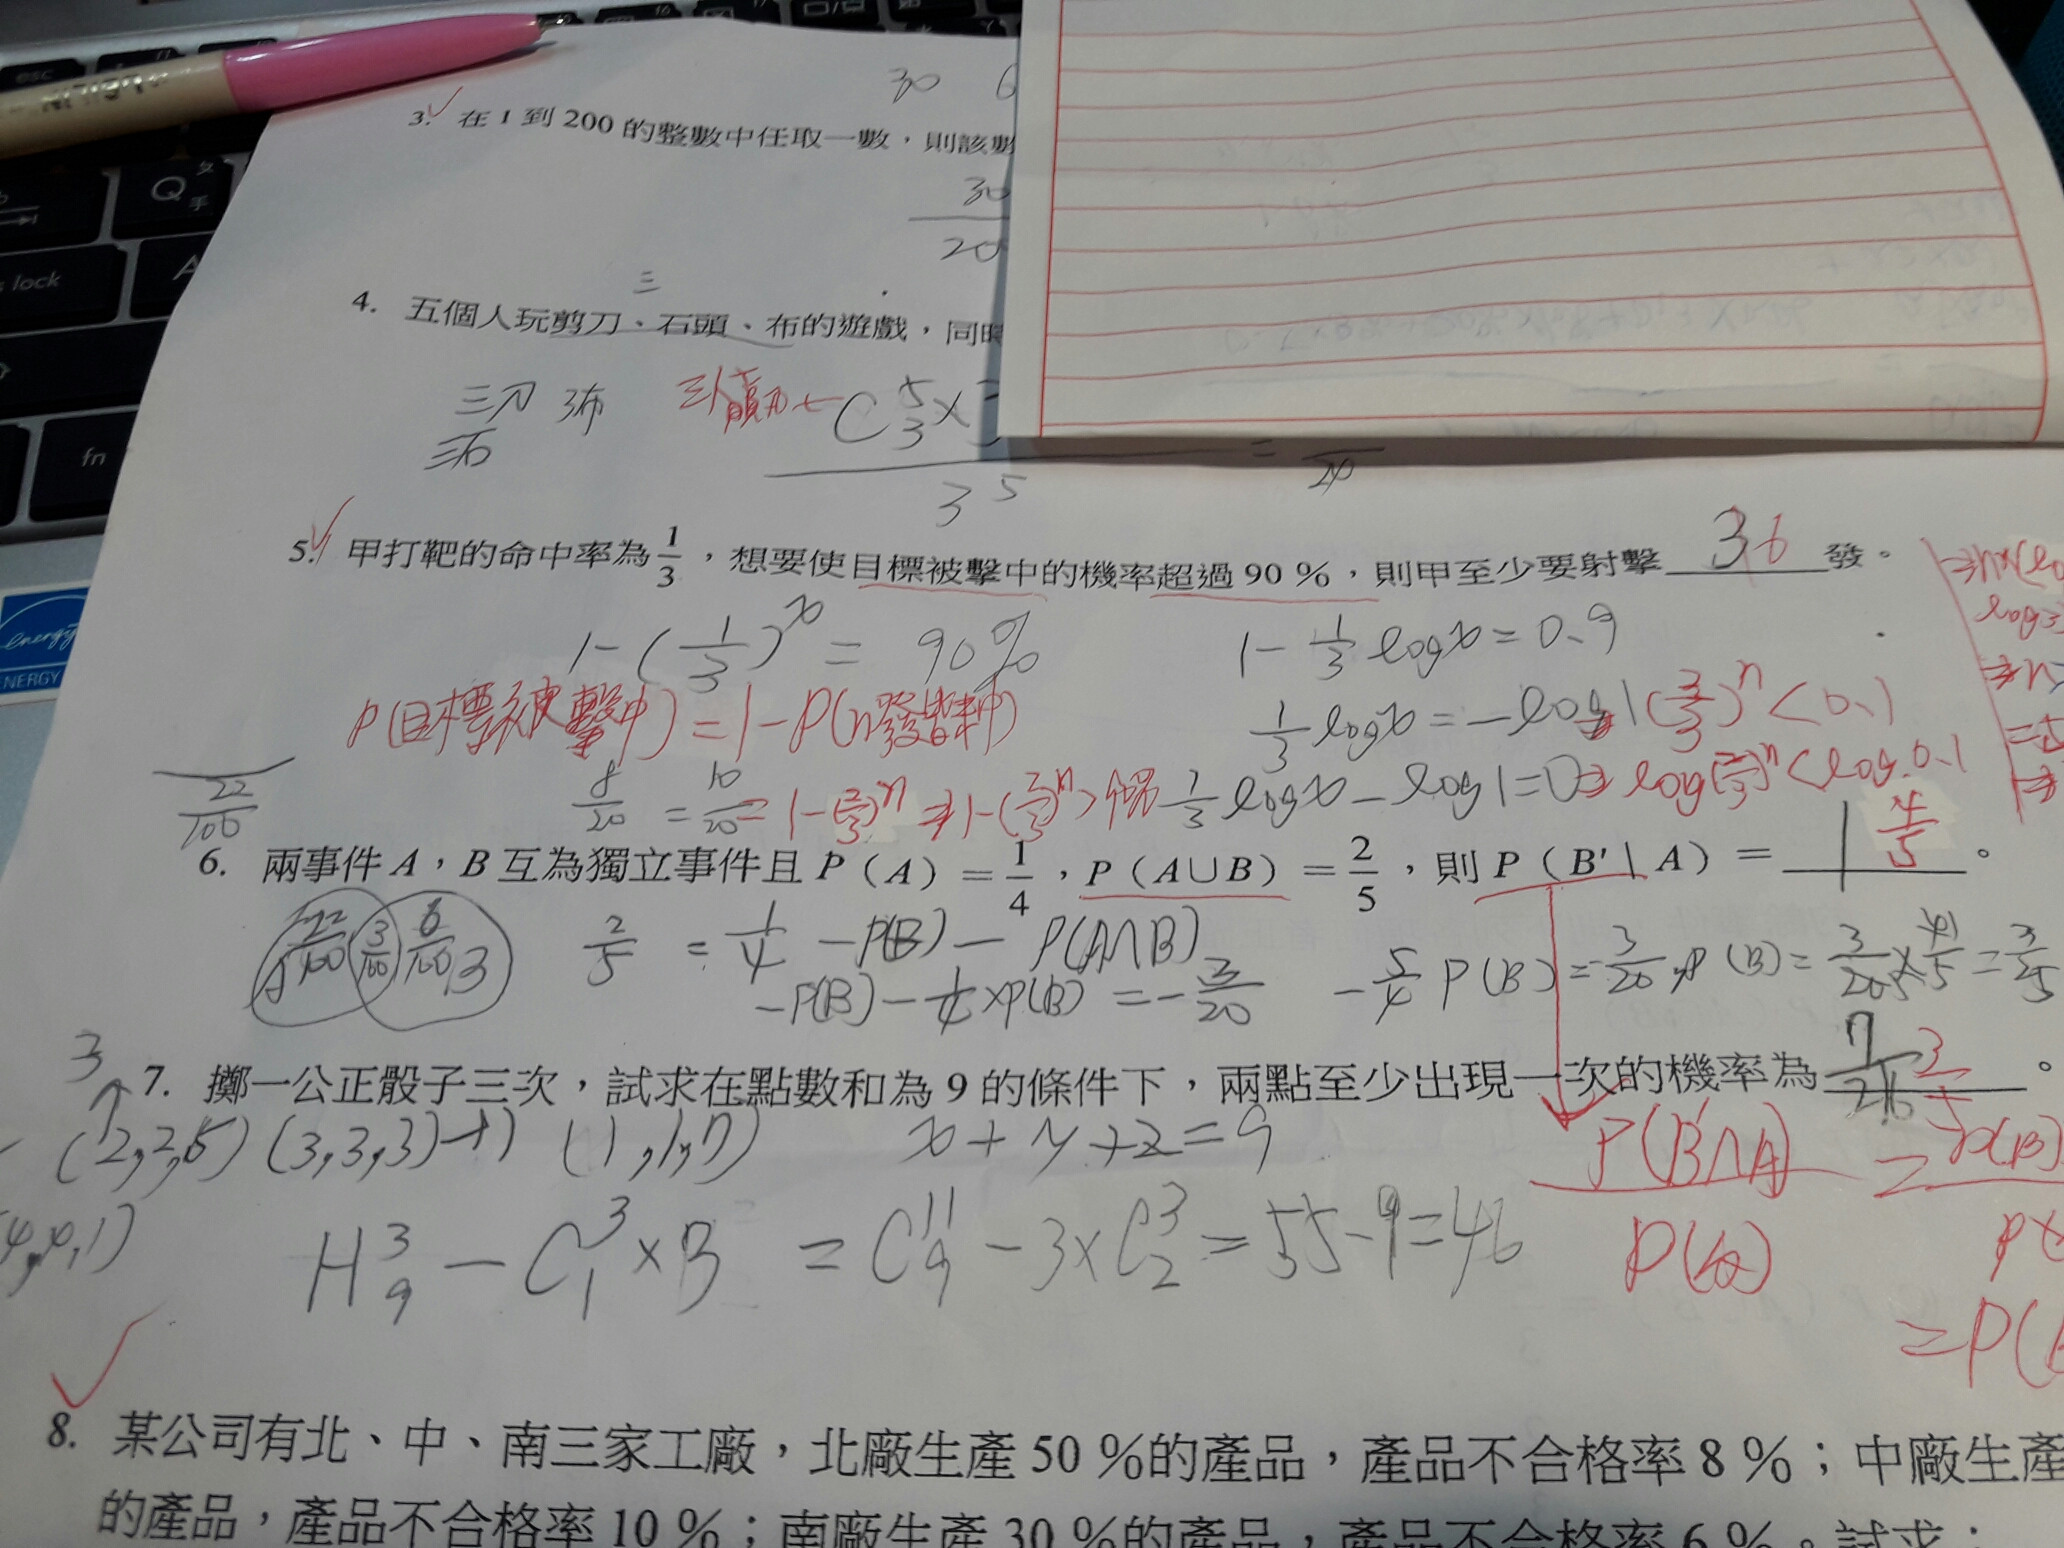 esc
Q
ㄆ
手
A
lock
fn
energy
ENERGY
30
3. 在 1 到 200 的整數中任取一數，則該數
30
20
三
4. 五個人玩剪刀、石頭、布的遊戲，同時
三刀 3布
三石
三人贏 ← C 5 3 ×
3^5
=
20
5. 甲打靶的命中率為 1/3 ，想要使目標被擊中的機率超過 90 %，則甲至少要射擊 3 6 發。
1-(1/3)^x = 90%
1 - 1/3 logx = 0.9
P(目標被擊中) = 1-P(n發皆未中)
1/3 logx = -log1
(2/3)^n < 0.1
22/100
8/20 = 10/20
= 1-(2/3)^n ⇒ 1-(2/3)^n >
1/3 logx - log1 = 0
⇒ log(2/3)^n < log 0.1
6. 兩事件 A，B 互為獨立事件且 P（A）= 1/4 ，P（A∪B）= 2/5 ，則 P（B′| A）= 1 4/5 。
22/100 3/100 6/100 3
2/5 = 1/4 -P(B) - P(A∩B)
-P(B) - 1/4 ×P(B) = -3/20
-5/4 P(B) = -3/20 , P(B) = 3/20 × 4/5 = 3/25
3
7. 擲一公正骰子三次，試求在點數和為 9 的條件下，兩點至少出現一次的機率為 7/216 3/5 。
(2,2,5) (3,3,3)→1 (1,1,7) x+y+z=9
4,4,1)
P(B′∩A)/P(A) =
H 3 9 - C 3 1 ×B = C 11 9 - 3×C 3 2 = 55-9=46
=P(
8. 某公司有北、中、南三家工廠，北廠生產 50 %的產品，產品不合格率 8 %；中廠生產
的產品，產品不合格率 10 %；南廠生產 30 %的產品，產品不合格率 6 %。試求：